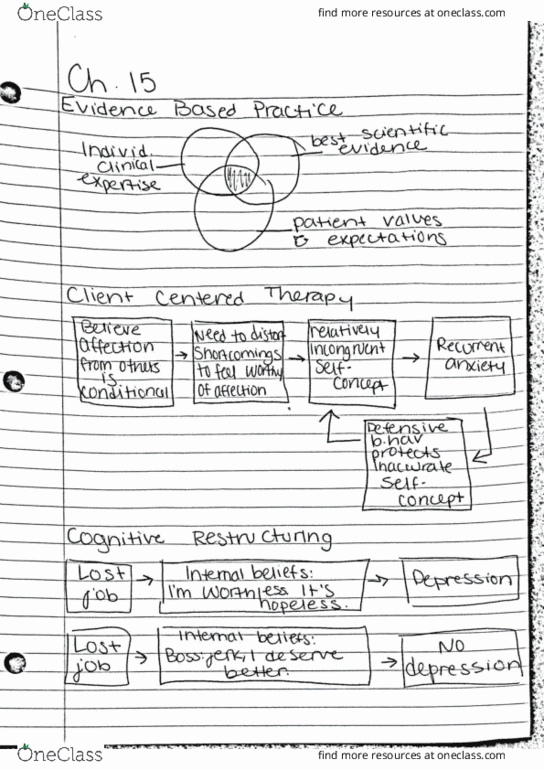 OneClass
find more resources at oneclass.com
Ch. 15
Evidence Based Practice
Individ.
clinical
expertise
best scientific
evidence
patient values
& expectations
Client Centered Therapy
Believe
affection
from others
is
conditional
Need to distort
shortcomings
to feel worthy
of affection
relatively
incongruent
self-
concept
Recurrent
anxiety
Defensive
b.hav
protects
inaccurate
self-
concept
Cognitive Restructuring
Lost
job
Internal beliefs:
I'm worthless It's
hopeless.
Depression
Lost
job
Internal beliefs:
Boss:jerk, I deserve
better.
No
depression
OneClass
find more resources at oneclass.com